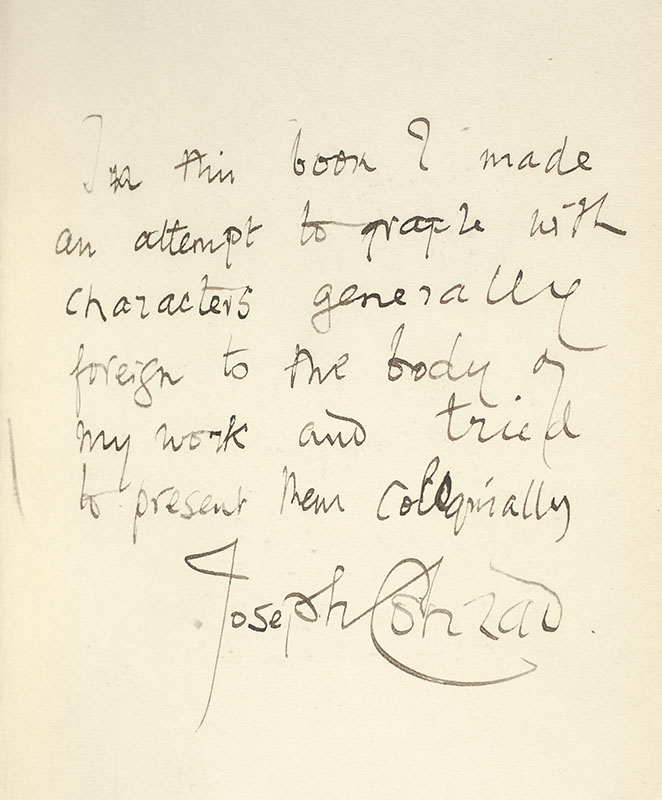 In this book I made
an attempt to grapple with
characters generally
foreign to the body of
my work and tried
to present them colloquially
Joseph Conrad.